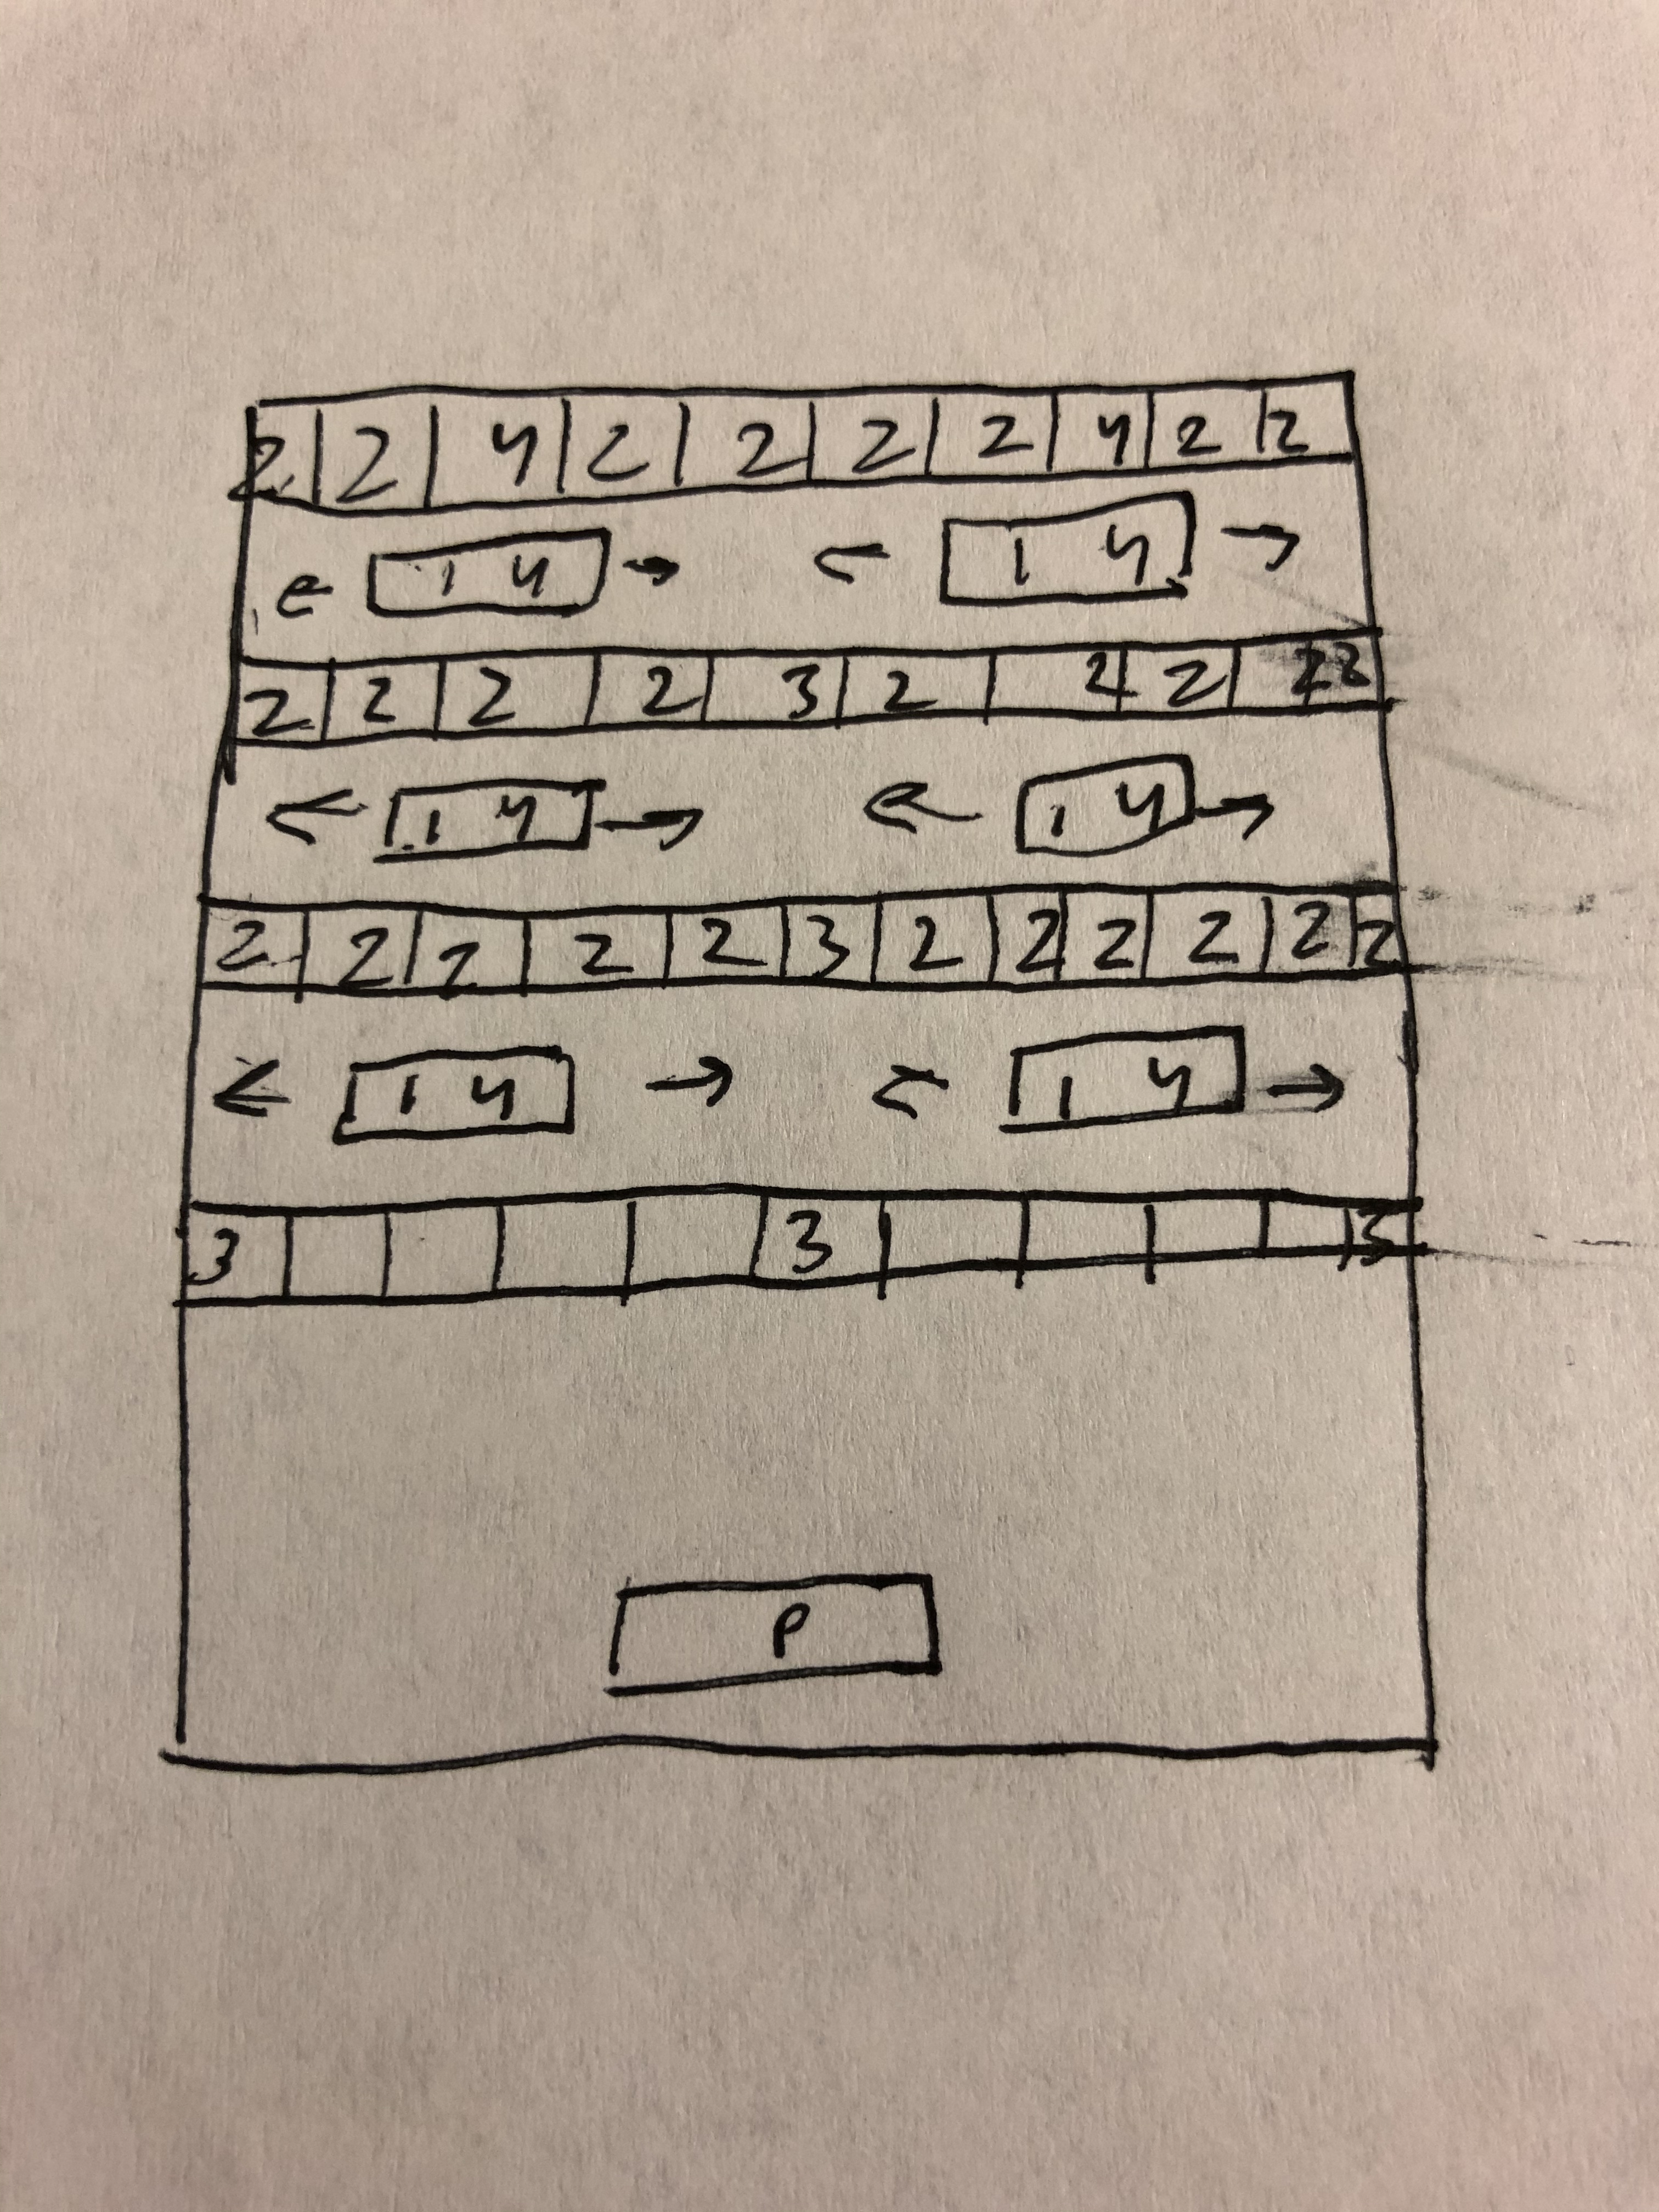 2 2 4 2 2 2 2 4 2 2
1 4 1 4
2 2 2 2 3 2 2 2
1 4 1 4
2 2 2 2 2 3 2 2 2 2 2 2
1 4 1 4
3 3 3
P